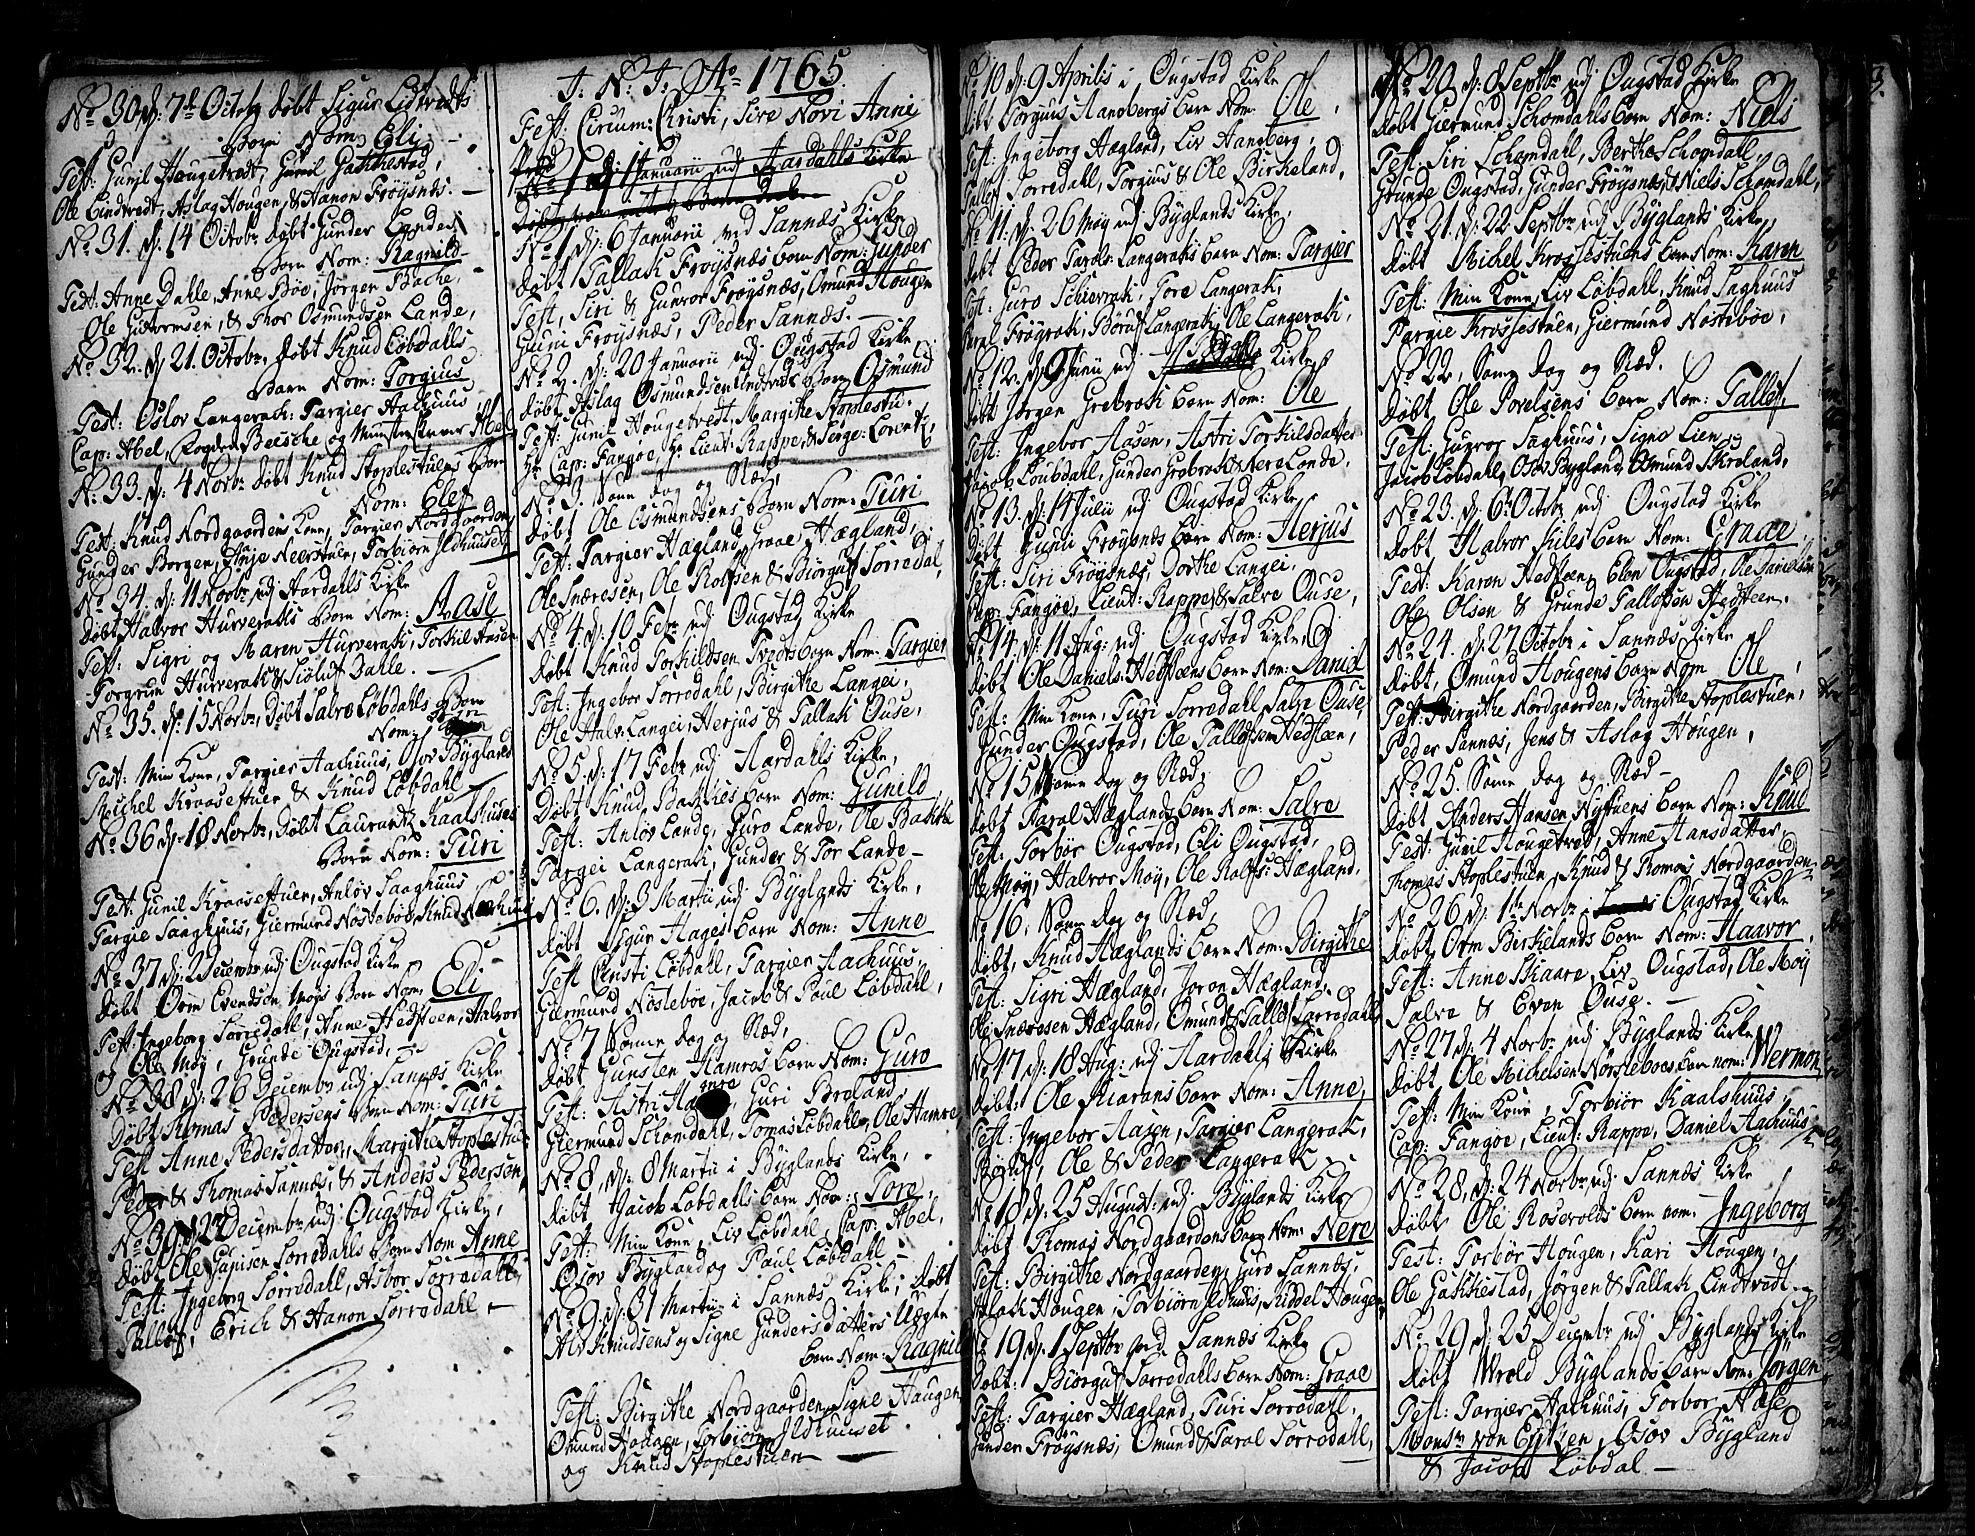 No 30, d: 7de Octbr døbt Sigur Lidtvedts
Born Nom: Eli
Test: Gunil Hougetvedt, Gunil Gakkestad,
Ole Lindtvedt, Aslag Hougen, & Hanon Frøysnes.
No 31. d: 14 Octobr: døbt Gunder
Born Nom: Ragnild
Test: Anne Dahle, Anne Bøe, Jørgen Bache,
Ole Guttormsen, & Thor Osmundsen Lande,
No 32. d: 21 Octobr, døbt Knud Løbdalls
Born Nom: Torgius
Test: Oslov Langerach: Targier Aachuus
Cap: Abel, Fogden Beische og Abel
No: 33. d: 4 Novbr døbt Knud Stoplestuens Born
Nom: Elef
Test: Knud Nordgaardens Kone, Targier Nordgaarden,
Gunder Borgen, Tarje Neerstuen, Torbiørn Ildhuusen
No 34. d: 11 Novbr, udj Aardahls Kirke
døbt Halvor Hurveraks Born Nom: Aase
Test: Sigri og Maren Hurverak, Torkil Aasen
Torgrim Hurverak & Sioluf Dahle.
No 35. d: 15 Novbr, døbt Salve Løbdahls Born
Nom:
Test: Min Kone, Targier Aachuus, Osov Bygland
Michel Kraasestuen & Knud Løbdahl
No 36 d: 18 Novbr, døbt Laurantz Kaalshuses
Born Nom: Turi
Test: Gunil Kraasestuen, Anløv Saaghuus
Targie Saaghuus, Giermund Nostebøe, Knud
No 37 d: 2 Decembr udj Ougstad Kirke
døbt Orm Evendsen Moys Born Nom: Eli
Test: Ingeborg Sorredall, Anne Hedsteen, Halvor
og Ole Moy, Grunde Ougstad,
No 38 d: 26 Decembr udj Sannæs Kirke
Døbt Thomas Pedersens Born Nom: Turi
Test Anne Pedersdatter, Margithe Stoplestuen
Peder & Thomas Sannæs, & Anders Pedersen,
No 39 d: 22 Decembr udj Ougstad Kirke,
døbt Ole Sorredahls Born Nom Anne
Test: Ingeborg Sorredall, Asbor Sorredall,
Tallef, Erich & Hanon Sorredahl
J. N. J. Ao 1765
Fest: Circum: Christi, Sive Novi Anni
No 1 d: 1 Januarii udj Aardahls Kirke
No 1 d: 6 Januarii ved Sannæs Kirke
døbt Tallak Frøysnæs born Nom: Gunder
Test, Siri & Gunvor Frøysnæs, Omund Hougen
Guuni Frøysnæs, Peder Sannæs.
No 2. d: 20 Januarii udj Ougstad Kirke
døbt Aslag Osmundsen Born Osmund
Test: Gunil Hougetvedt, Margithe Stoplestu.
Hr Cap: Fangøe, Hr Lieut: Rappe, & Serge: Lorentz,
No 3. Samme dag og Stæd,
døbt Ole Osmundsens Born Nom: Turi
Test: Targier Hægland, Graae Hægland,
Ole Snæresen, Ole Rolfsen & Biørguf Sorredal,
No 4. d: 10 Febr: udj Ougstad Kirke
døbt Knud Torkildsen Tvedts born Nom: Targier
Test: Ingebor Sorredahl, Birgithe Langei,
Ole Halv: Langei, Herjus & Tallak Ouse,
No 5. d: 17 Febr udj Aardahls Kirke,
Døbt Knud Bakkes born Nom: Gunild
Test: Anløv Lande, Guro Lande, Ole Bakke
Targei Langerak, Gunder & Tor Lande
No 6. d: 3 Martii udj Byglands Kirke,
døbt Sigur Hages born Nom: Anne
Test Christi Løbdahl, Targier Aachuus,
Giermund Nostebøe, Jacob & Paul Løbdahl,
No 7 Samme dag og Stæd,
døbt Gunsten Hamros born Nom: Guro
Test: Astri Hamre, Guri Broland,
Giermund Schomdahl, Tomas Løbdahl, Ole Hamre
No 8, d: 8 Martii i Byglands Kirke,
døbt Jacob Løbdalls born Nom: Tore,
Test: Min Kone, Liv Løbdahl, Cap: Abel,
Osov Bygland og Paul Løbdahl
No 9. d: 31 Martii i Sannæs Kirke, døbt
Alv Knudsens og Signe Gundersdatters Uægte
born Nom: Ragnil
Test: Birgithe Nordgaarden, Signe Haugen
Omund Hougen, Torbiørn Ildhuuset
og Knud Stoplestuen
No 10 d: 9 Aprilis i Ougstad Kirke
døbt Torguus Aandbergs born Nom: Ole,
Test: Ingeborg Hægland, Liv Aandberg,
Tallef Sorredahl, Torgius & Ole Birkeland,
No 11. d: 26 May udj Byglands Kirke,
døbt Peder Tarols: Langeraks born Nom: Targier
Test: Guro Schievrak, Tore Langerak,
Tarol Frøyrak, Børuf Langerak, Ole Langerak,
No 12. d: 9 Junii udj Kirke
døbt Jørgen Grebroks born Nom: Ole
Test: Ingebor Aasen, Astri Torkilsdatter
Jacob Loubdahl, Gunder Grebrok & Nere Londe,
No 13. d: 14 Julii udj Ougstad Kirke
døbt Guuni Frøysnes born Nom: Herjus
Test: Siri Frøysnæs, Dorthe Langei,
Cap: Fangøe, Lieut: Rappe, & Salve Ouse,
No 14. d: 11 Aug: udj Ougstad Kirke
døbt Ole Daniels: Hedsteens born Nom: Daniel
Test: Min Kone, Turi Sorredall, Salve Ouse,
Gunder Ougstad, Ole Tallofsen Hedsteen,
No 15, Samme dag og Stæd,
døbt Tarol Hæglands born Nom: Salve
Test: Torbør Ougstad, Eli Ougstad,
Ole Moy, Halvor Moy, Ole Rolfs: Hægland,
No 16, Samme dag og Stæd,
døbt, Knud Hæglands born Nom: Birgithe
Test: Sigri Hægland, Joron Hægland,
Ole Snæresen Hægland, Omund & Tallef Sorredahl
No 17 d: 18 Aug: udj Aardahls Kirke
døbt: Ole Kiærans born Nom: Anne,
Test: Ingebor Aasen, Targier Langerak,
Børuf, Ole & Peder Langerak
No 18 d: 25 August: udj Byglands Kirke
døbt Thomas Nordgaardens born Nom: Nere
Test: Birgithe Nordgaarden, Guro Sannes,
Aslak Hougen, Torbiørn Ildhuus, Riddel Hougen
No 19 d: 1 Septbr ved Sannæs Kirke
døbt: Biørguf Sorredahls born Nom: Graae
Test: Targier Hægland, Turi Sorredahl,
Gunder Frøysnæs, Omund & Tarol Sorredahl,
No 20 d: 8 Septbr udj Ougstad Kirke
døbt Giermund Schomdahls born Nom: Niels
Test: Siri Schomdahl, Berthe Schomdahl,
Grunde Ougstad, Gunder Frøysnæs, & Niels Schomdahl,
No 21. d: 22 Septbr udj Byglands Kirke,
døbt Michel Krossestuens born Nom: Karen
Test: Min Kone, Liv Løbdall, Knud Saghuus
Targie Krossestuen, Giermund Nostebøe,
No 22, Same Dag og Stæd.
døbt Ole Povelsens born Nom: Tallef,
Test: Gugror Saghuus, Signe Lien
Jacob Løbdall, Osov Bygland, Osmund Skreland,
No 23. d: 6 Octobr udj Ougstad Kirke
døbt Halvor Kiles born Nom: Graae
Test: Karen Hedsteen, Elen Ougstad, Ole Danielsen
Ole Olsen & Grunde Tallofsen Hedsteen,
No 24. d: 27 Octobr i Sannæs Kirke
døbt, Omund Hougens born Nom Ole,
Test: Birgithe Nordgaarden, Birgithe Stoplestuen,
Peder Sannæs, Jens & Aslag Hougen,
No 25. Same dag og Stæd
døbt Anders Hansen Nystuens born Nom: Knud
Test: Gunil Hougetvedt, Anne Hansdatter,
Thomas Stoplestuen, Knud & Thomas Nordgaarden
No 26 d: 1te Novbr i Ougstad Kirke
døbt Orm Birkelands born Nom: Haavor,
Test: Anne Skaare, Liv Ougstad, Ole Moy
Salve & Even Ouse.
No 27 d: 4 Novbr udj Byglands Kirke
døbt, Ole Michelsen Nørstebøes born nom: Wermon
Test: Min Kone, Torbiør Kaalshuus,
Cap: Fangøe, Lieut: Rappe, Daniel Aachuus,
No 28, d: 24 Novbr udj Sannæs Kirke
døbt Ole Rosevolds born nom: Ingeborg
Test: Torbør Hougen, Kari Hougen,
Ole Gakkestad, Jørgen & Tallak Lindtvedt
No 29 d: 25 Decembr udj Byglands Kirke
døbt Wrold Byglands born Nom: Jørgen
Test: Targier Aachuus, Torbor Aase,
Monsr von Eytzen, Osov Bygland
& Jacob Løbdal